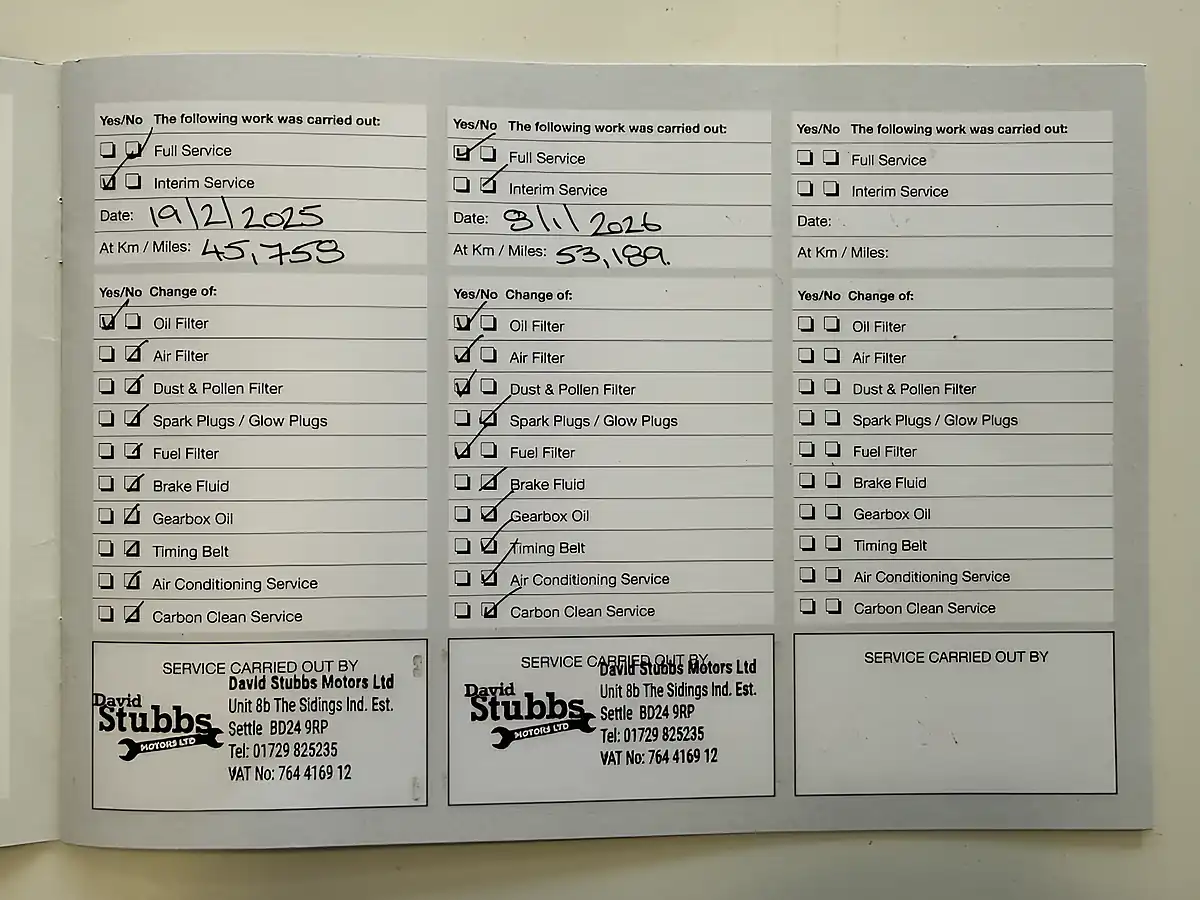 Yes/No The following work was carried out:
Full Service
Interim Service
Date: 19/2/2025
At Km / Miles: 45,758
Yes/No Change of:
Oil Filter
Air Filter
Dust & Pollen Filter
Spark Plugs / Glow Plugs
Fuel Filter
Brake Fluid
Gearbox Oil
Timing Belt
Air Conditioning Service
Carbon Clean Service
SERVICE CARRIED OUT BY
David
Stubbs
MOTORS LTD
David Stubbs Motors Ltd
Unit 8b The Sidings Ind. Est.
Settle BD24 9RP
Tel: 01729 825235
VAT No: 764 4169 12
Yes/No The following work was carried out:
Full Service
Interim Service
Date: 8/1/2026
At Km / Miles: 53,189.
Yes/No Change of:
Oil Filter
Air Filter
Dust & Pollen Filter
Spark Plugs / Glow Plugs
Fuel Filter
Brake Fluid
Gearbox Oil
Timing Belt
Air Conditioning Service
Carbon Clean Service
SERVICE CARRIED OUT BY
David
Stubbs
MOTORS LTD
David Stubbs Motors Ltd
Unit 8b The Sidings Ind. Est.
Settle BD24 9RP
Tel: 01729 825235
VAT No: 764 4169 12
Yes/No The following work was carried out:
Full Service
Interim Service
Date:
At Km / Miles:
Yes/No Change of:
Oil Filter
Air Filter
Dust & Pollen Filter
Spark Plugs / Glow Plugs
Fuel Filter
Brake Fluid
Gearbox Oil
Timing Belt
Air Conditioning Service
Carbon Clean Service
SERVICE CARRIED OUT BY